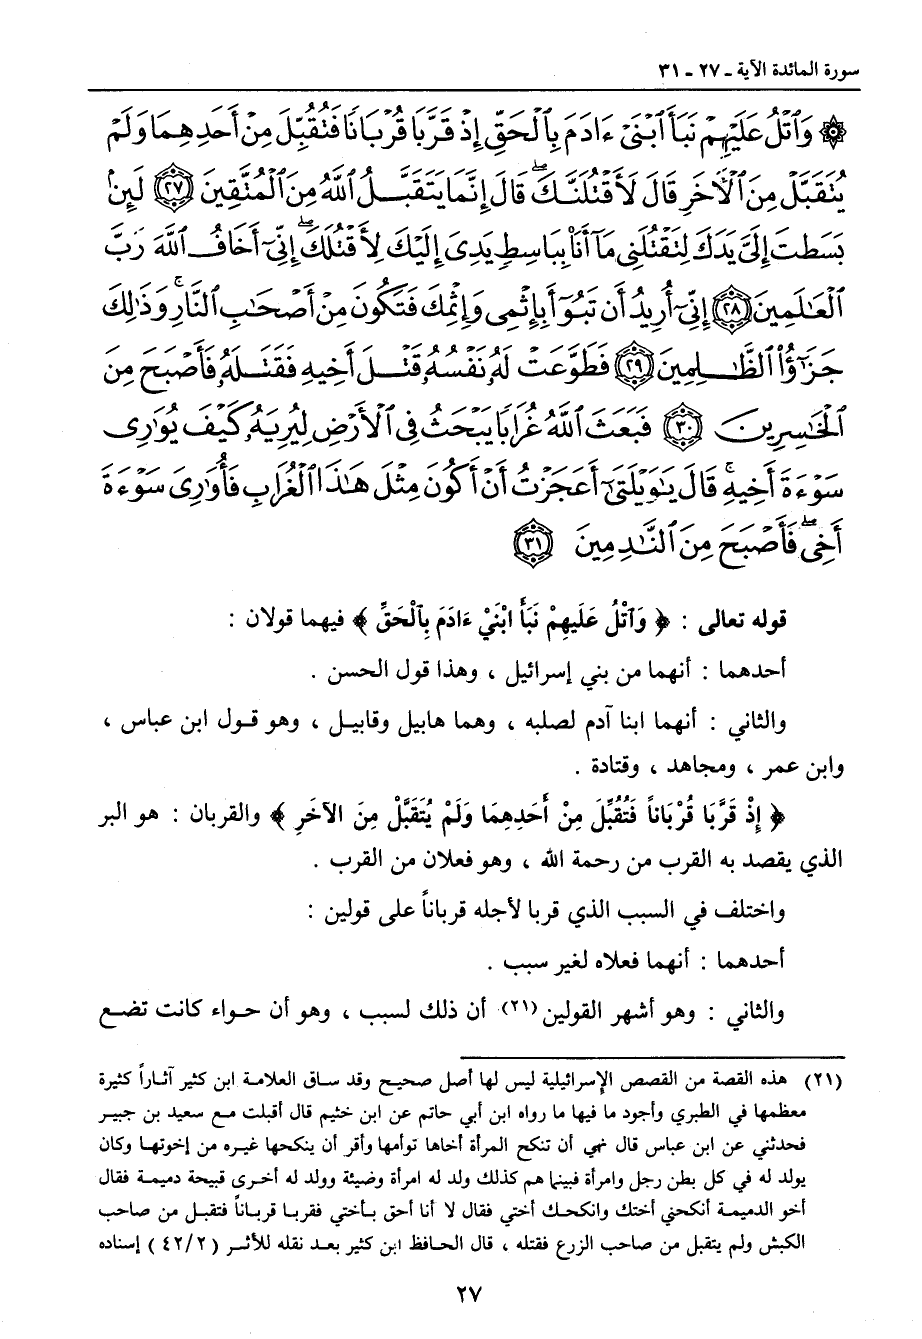 سورة المائدة الآية ـ ٢٧ ـ ٣١
۞ وَٱتْلُ عَلَيْهِمْ نَبَأَ ٱبْنَىْ ءَادَمَ بِٱلْحَقِّ إِذْ قَرَّبَا قُرْبَانًا فَتُقُبِّلَ مِنْ أَحَدِهِمَا وَلَمْ
يُتَقَبَّلْ مِنَ ٱلْأَخَرِ قَالَ لَأَقْتُلَنَّكَ ۖ قَالَ إِنَّمَا يَتَقَبَّلُ ٱللَّهُ مِنَ ٱلْمُتَّقِينَ ٢٧ لَئِنۢ
بَسَطتَ إِلَىَّ يَدَكَ لِتَقْتُلَنِى مَآ أَنَا۠ بِبَاسِطٍ يَدِىَ إِلَيْكَ لِأَقْتُلَكَ ۖ إِنِّىٓ أَخَافُ ٱللَّهَ رَبَّ
ٱلْعَـٰلَمِينَ ٢٨ إِنِّىٓ أُرِيدُ أَن تَبُوٓأَ بِإِثْمِى وَإِثْمِكَ فَتَكُونَ مِنْ أَصْحَـٰبِ ٱلنَّارِ ۚ وَذَٰلِكَ
جَزَٰٓؤُا۟ ٱلظَّـٰلِمِينَ ٢٩ فَطَوَّعَتْ لَهُۥ نَفْسُهُۥ قَتْلَ أَخِيهِ فَقَتَلَهُۥ فَأَصْبَحَ مِنَ
ٱلْخَـٰسِرِينَ ٣٠ فَبَعَثَ ٱللَّهُ غُرَابًا يَبْحَثُ فِى ٱلْأَرْضِ لِيُرِيَهُۥ كَيْفَ يُوَٰرِى
سَوْءَةَ أَخِيهِ ۚ قَالَ يَـٰوَيْلَتَىٰٓ أَعَجَزْتُ أَنْ أَكُونَ مِثْلَ هَـٰذَا ٱلْغُرَابِ فَأُوَٰرِىَ سَوْءَةَ
أَخِى ۖ فَأَصْبَحَ مِنَ ٱلنَّـٰدِمِينَ ٣١
قوله تعالى : ﴿ وَٱتْلُ عَلَيهِمْ نَبَأَ ابْنَيْ ءَادَمَ بِٱلْحَقِّ ﴾ فيهما قولان :
أحدهما : أنهما من بني إسرائيل ، وهذا قول الحسن .
والثاني : أنهما ابنا آدم لصلبه ، وهما هابيل وقابيل ، وهو قول ابن عباس ،
وابن عمر ، ومجاهد ، وقتادة .
﴿ إِذْ قَرَّبَا قُرْبَاناً فَتُقُبِّلَ مِنْ أَحَدِهِمَا وَلَمْ يُتَقَبَّلْ مِنَ الآخَرِ ﴾ والقربان : هو البر
الذي يقصد به القرب من رحمة الله ، وهو فعلان من القرب .
واختلف في السبب الذي قربا لأجله قرباناً على قولين :
أحدهما : أنهما فعلاه لغير سبب .
والثاني : وهو أشهر القولين (٢١) أن ذلك لسبب ، وهو أن حواء كانت تضع
(٢١) هذه القصة من القصص الإسرائيلية ليس لها أصل صحيح وقد ساق العلامة ابن كثير آثاراً كثيرة
معظمها في الطبري وأجود ما فيها ما رواه ابن أبي حاتم عن ابن خثيم قال أقبلت مع سعيد بن جبير
فحدثني عن ابن عباس قال نهي أن تنكح المرأة أخاها توأمها وأقر أن ينكحها غيره من إخوتها وكان
يولد له في كل بطن رجل وامرأة فبينما هم كذلك ولد له امرأة وضيئة وولد له أخرى قبيحة دميمة فقال
أخو الدميمة أنكحني أختك وانكحك أختي فقال لا أنا أحق بأختي فقربا قرباناً فتقبل من صاحب
الكبش ولم يتقبل من صاحب الزرع فقتله ، قال الحافظ ابن كثير بعد نقله للأثر ( ٤٢/٢ ) إسناده
٢٧